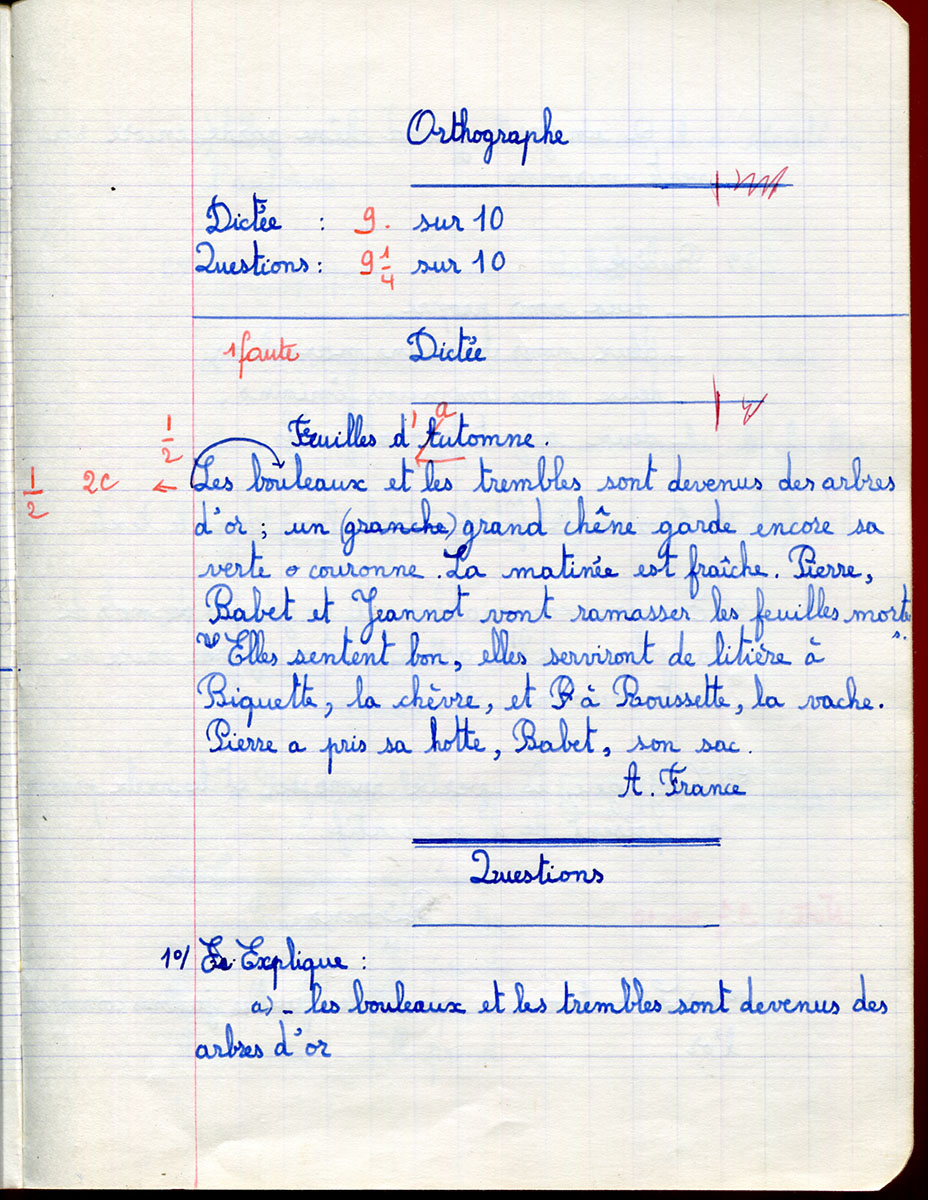 Orthographe
Dictée : 9. sur 10
Questions : 9 1/4 sur 10
1 faute Dictée
a
1/2 Feuilles d'Automne.
1/2 2c ← Les bouleaux et les trembles sont devenus des arbres
d'or ; un (granche) grand chêne garde encore sa
verte o couronne. La matinée est fraîche. Pierre,
Babet et Jeannot vont ramasser les feuilles morte
s.
Elles sentent bon, elles serviront de litière à
Biquette, la chèvre, et R à Roussette, la vache.
Pierre a pris sa hotte, Babet, son sac.
A. France
Questions
1o/ Ex Explique :
a) - les bouleaux et les trembles sont devenus des
arbres d'or